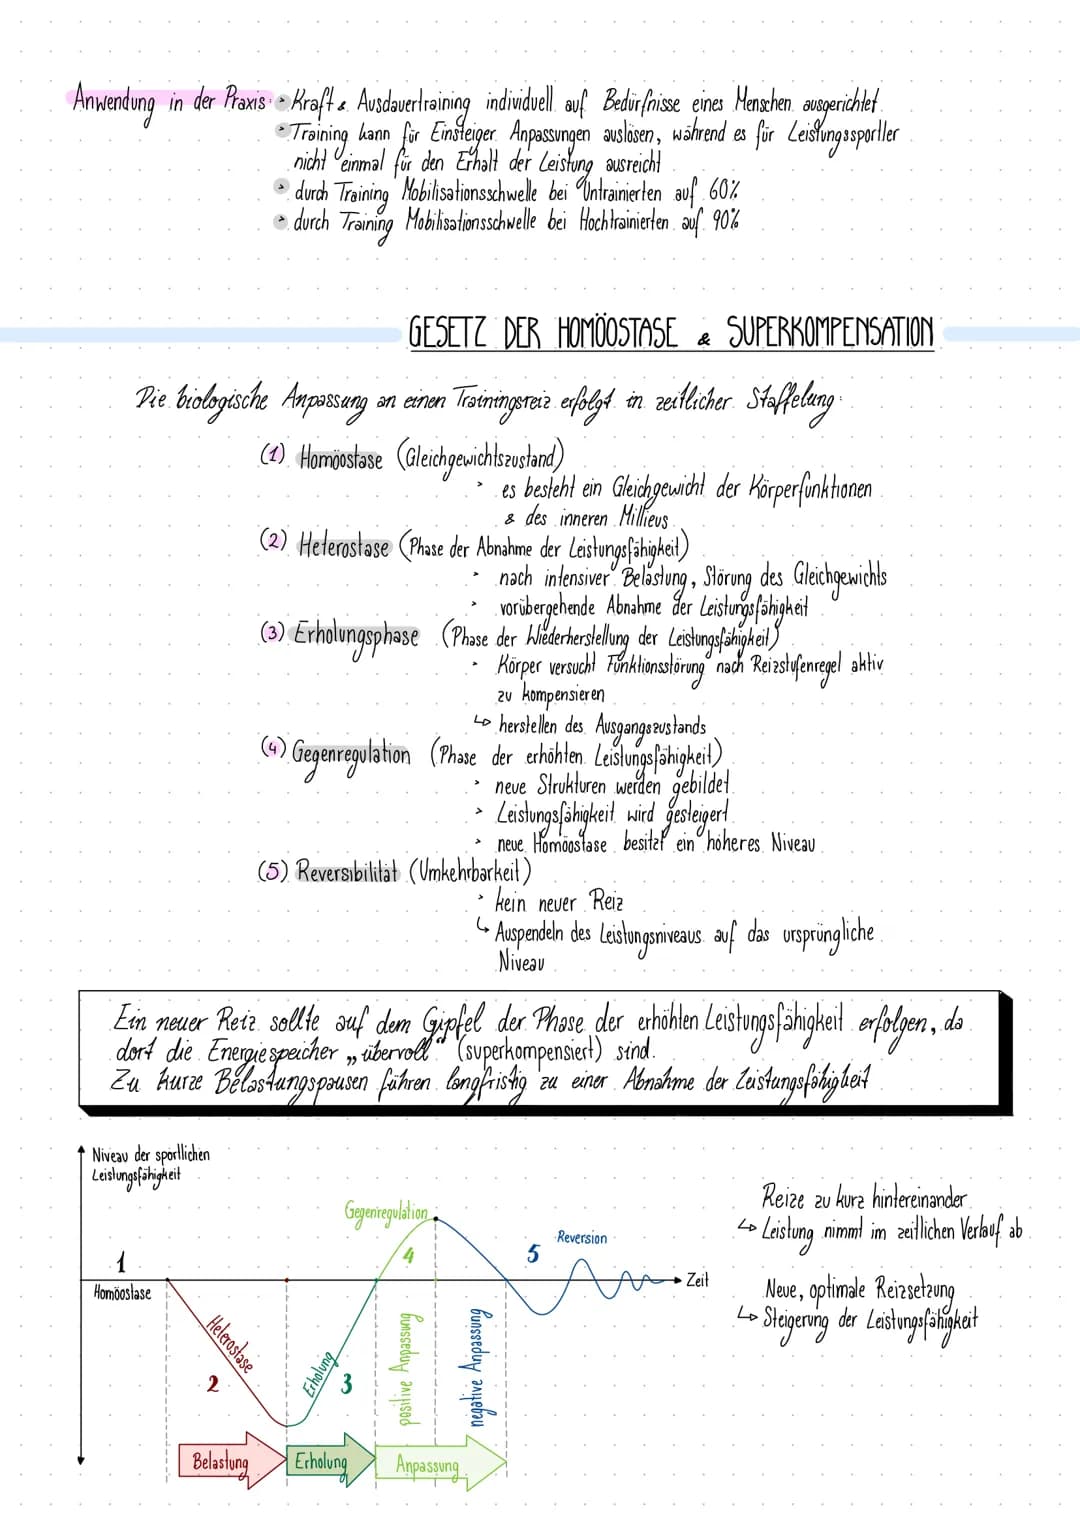 Anwendung in der Praxis: Kraft & Ausdauertraining individuell auf Bedürfnisse eines Menschen ausgerichtet
Training kann für Einsteiger Anpassungen auslösen, während es für Leistungssportller
nicht einmal für den Erhalt der Leistung ausreicht
durch Training Mobilisationsschwelle bei Untrainierten auf 60%
durch Training Mobilisationsschwelle bei Hochtrainierten auf 90%
GESETZ DER HOMÖOSTASE & SUPERKOMPENSATION
Die biologische Anpassung an einen Trainingsreiz erfolgt in zeitlicher Staffelung:
(1) Homöostase (Gleichgewichtszustand)
es besteht ein Gleichgewicht der Körperfunktionen
& des inneren Millieus
(2) Heterostase (Phase der Abnahme der Leistungsfähigkeit)
nach intensiver Belastung, Störung des Gleichgewichts
vorübergehende Abnahme der Leistungsfähigkeit
(3) Erholungsphase (Phase der Wiederherstellung der Leistungsfähigkeit)
Körper versucht Funktionsstörung nach Reizstufenregel aktiv
zu kompensieren
↳ herstellen des Ausgangszustands
(4) Gegenregulation (Phase der erhöhten Leistungsfähigkeit)
neue Strukturen werden gebildet
Leistungsfähigkeit wird gesteigert
neue Homöostase besitzt ein höheres Niveau
(5) Reversibilität (Umkehrbarkeit)
kein neuer Reiz
↳ Auspendeln des Leistungsniveaus auf das ursprüngliche
Niveau
Ein neuer Reiz sollte auf dem Gipfel der Phase der erhöhten Leistungsfähigkeit erfolgen, da
dort die Energiespeicher „übervoll" (superkompensiert) sind.
Zu kurze Belastungspausen führen langfristig zu einer Abnahme der Leistungsfähigkeit
Niveau der sportlichen
Leistungsfähigkeit
1
Homöostase
Heterostase
2
Erholung
3
Gegenregulation
4
positive Anpassung
negative Anpassung
5
Reversion
Zeit
Belastung
Erholung
Anpassung
Reize zu kurz hintereinander
↳ Leistung nimmt im zeitlichen Verlauf ab
Neue, optimale Reizsetzung
↳ Steigerung der Leistungsfähigkeit